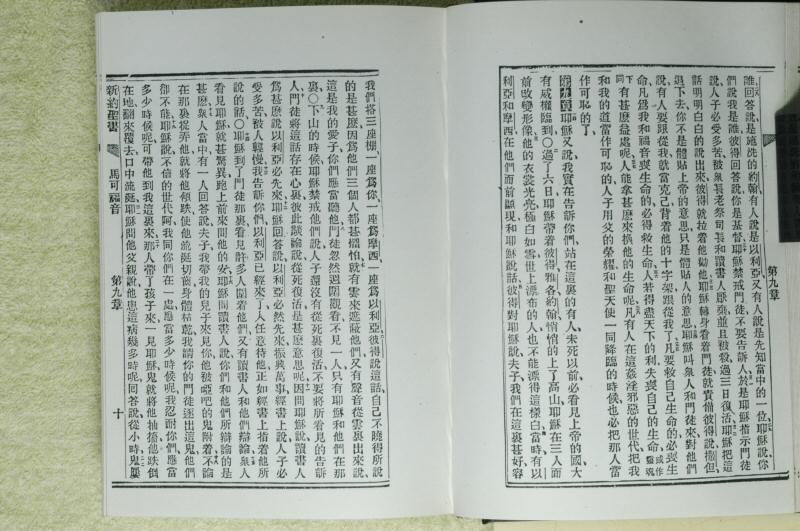 第九章
誰回答說是施洗的約翰有人說是以利亞又有人說是先知當中的一位耶穌說你
們說我是誰彼得回答說你是基督耶穌禁戒門徒不要告訴人於是耶穌指示門徒
說人子必受多苦被衆長老祭司長和讀書人厭棄並且被殺過三日復活耶穌把這
話明明白白的說出來彼得就拉着他勸他耶穌轉身看着門徒就責備彼得說撒但
退下去你不是體貼上帝的意思只是體貼人的意思耶穌叫衆人和門徒來對他們
說有人要跟從我就當克己背着他的十字架跟從我了凡要救自己生命的必喪生
命凡爲我和福音喪生命的必得救生命人若得盡天下的利失喪自己的生命或作靈魂下同
有甚麽益處呢人能拿甚麽來換他的生命呢凡有人在這姦淫邪惡的世代把我
和我的道當作可恥的人子用父的榮耀和聖天使一同降臨的時候也必把那人當
作可恥的了
第九章耶穌又說我實在告訴你們站在這裏的有人未死以前必看見上帝的國大
有威權臨到〇過了六日耶穌帶着彼得雅各約翰悄悄的上了高山耶穌在三人面
前改變形像他的衣裳光亮極白如雪世上漂布的人也不能漂得這樣白當時有以
利亞和摩西在他們面前顯現和耶穌說話彼得對耶穌說夫子我們在這裏甚好容
我們搭三座棚一座爲你一座爲摩西一座爲以利亞彼得說這話自己不曉得所說
的是甚麽因爲他們三個人都甚懼怕就有雲來遮蔽他們又有聲音從雲裏出來說
這是我的愛子你們應當聽他門徒忽然週圍觀看不見一人只有耶穌和他們在那
裏〇下山的時候耶穌禁戒他們說人子還沒有從死裏復活不要將所看見的告訴
人門徒將這話存在心裏彼此談論說從死復活是甚麽意思呢因問耶穌說讀書人
爲甚麽說以利亞必先來耶穌回答說以利亞必然先來振興萬事經書上說人子必
受多苦被人輕慢我告訴你們以利亞已經來了人任意待他正如經書上指着他所
說的話〇耶穌到了門徒那裏看見許多人圍着他們又有讀書人和他們辯論衆人
看見耶穌就甚驚異跑上前來問他的安耶穌問讀書人說你們和他們所辯論的是
甚麽衆人當中有一人回答說夫子我帶我的兒子來見你他被啞吧的鬼附着不論
在那裏捉弄他就將他傾跌使他流涎切齒身體枯乾我請你的門徒逐出這鬼他們
卻不能耶穌說不信的世代阿我同你們在一處應當多少時候呢我忍耐你們應當
多少時候呢可帶他到我這裏來那人帶了孩子來一見耶穌鬼就將他抽搐他跌倒
在地翻來覆去口中流涎耶穌問他父親說他患這病幾多時呢回答說從小時鬼屢
新約聖書
馬可福音
第九章
十